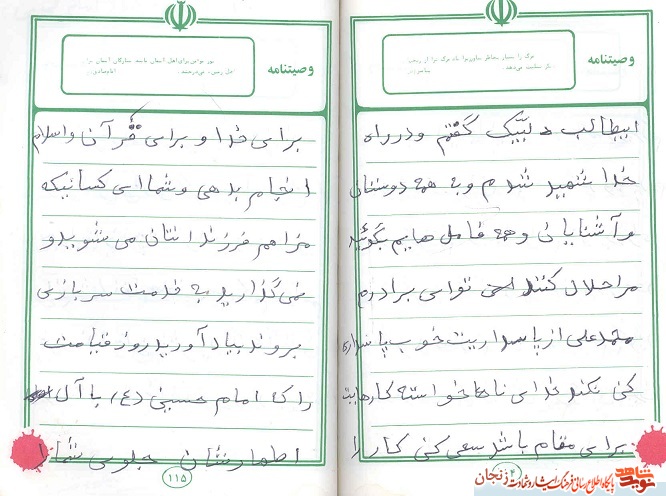 وصیتنامه
ابیطالب لبیک گفتم و در راه
خدا شهید شدم و به همه دوستان
و آشنایانی و همه فامل هایم بگوئید
مرا حلال کنند اخی توای برادرم
محمد علی از پاسداریت خوب پاسداری
کنی نکند خدای ناخواسته کارهایت
برای مقام باشد سعی کنی کار را
وصیتنامه
برای خدا و برای قرآن و اسلام
انجام بدهی و شما ای کسانیکه
مزاهم فرزندانتان می شوید و
نمی گذارید به خدمت سربازی
بروند بیاد آورید روز قیامت
را که امام حسین (ع) با آل
اطهارشان جلوی شما را
۱۱۵
نوید شاهد
پایگاه اطلاع رسانی فرهنگ ایثار و شهادت زنجان